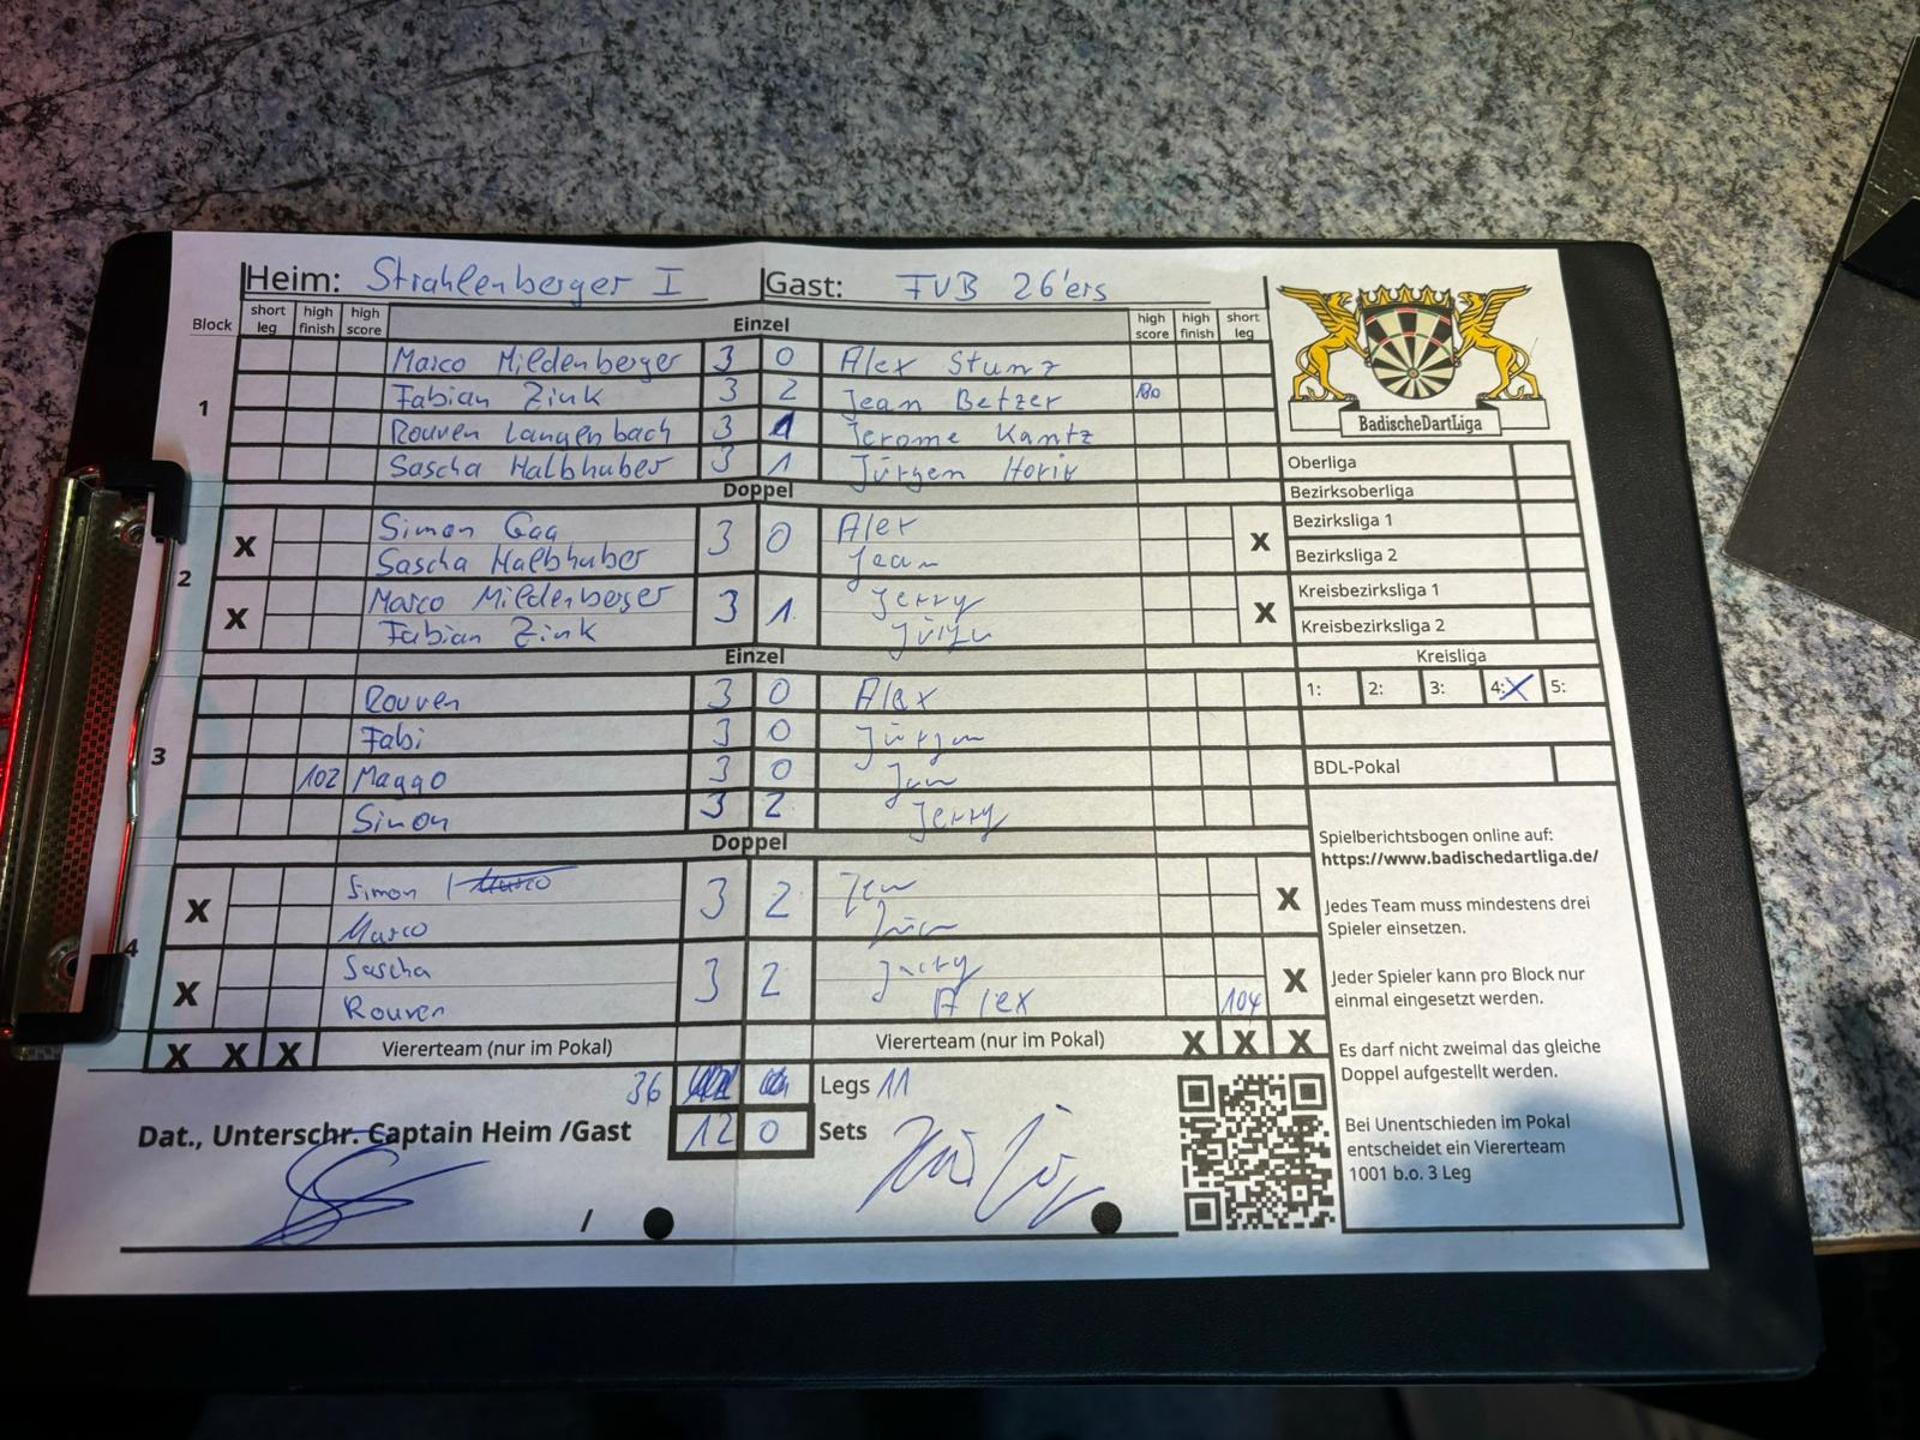 Heim: Strahlenberger I Gast: FVB 26'ers
Block short leg high finish high score Einzel high score high finish short leg
1
Marco Mildenberger 3 0 Alex Stunz
Fabian Zink 3 2 Jean Betzer 180
Rouven Langenbach 3 1 Jerome Kantz
Sascha Halbhuber 3 1 Jürgen
Doppel
2
X Simon Gaa 3 0 Alex X
Sascha Halbhuber Jean
X Marco Mildenberger 3 1 Jerry X
Fabian Zink Jürgen
Einzel
3
Rouven 3 0 Alex
Fabi 3 0 Jürgen
102 Maggo 3 0 Jean
Simon 3 2 Jerry
Doppel
4
X Simon 3 2 X
Marco
X Sascha 3 2 Jerry X
Rouven Alex 104
X X X Viererteam (nur im Pokal) Viererteam (nur im Pokal) X X X
36 Legs 11
Dat., Unterschr. Captain Heim /Gast 12 0 Sets
/
BadischeDartLiga
Oberliga
Bezirksoberliga
Bezirksliga 1
Bezirksliga 2
Kreisbezirksliga 1
Kreisbezirksliga 2
Kreisliga
1: 2: 3: 4: X 5:
BDL-Pokal
Spielberichtsbogen online auf:
https://www.badischedartliga.de/
Jedes Team muss mindestens drei
Spieler einsetzen.
Jeder Spieler kann pro Block nur
einmal eingesetzt werden.
Es darf nicht zweimal das gleiche
Doppel aufgestellt werden.
Bei Unentschieden im Pokal
entscheidet ein Viererteam
1001 b.o. 3 Leg